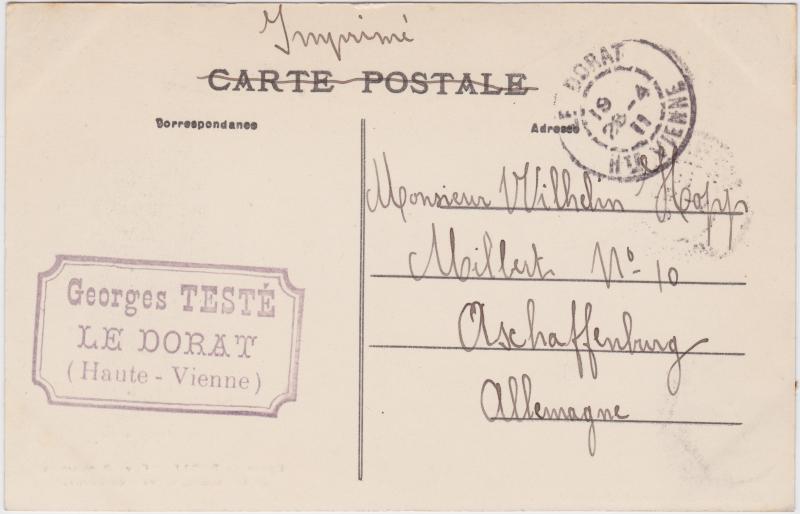 Imprimé
CARTE POSTALE
Correspondance
Adresse
LE DORAT
19
28 - 4
11
HTE VIENNE
Monsieur Wilhelm Hopp
Milbert No 10
Aschaffenburg
Allemagne
Georges TESTÉ
LE DORAT
(Haute - Vienne)